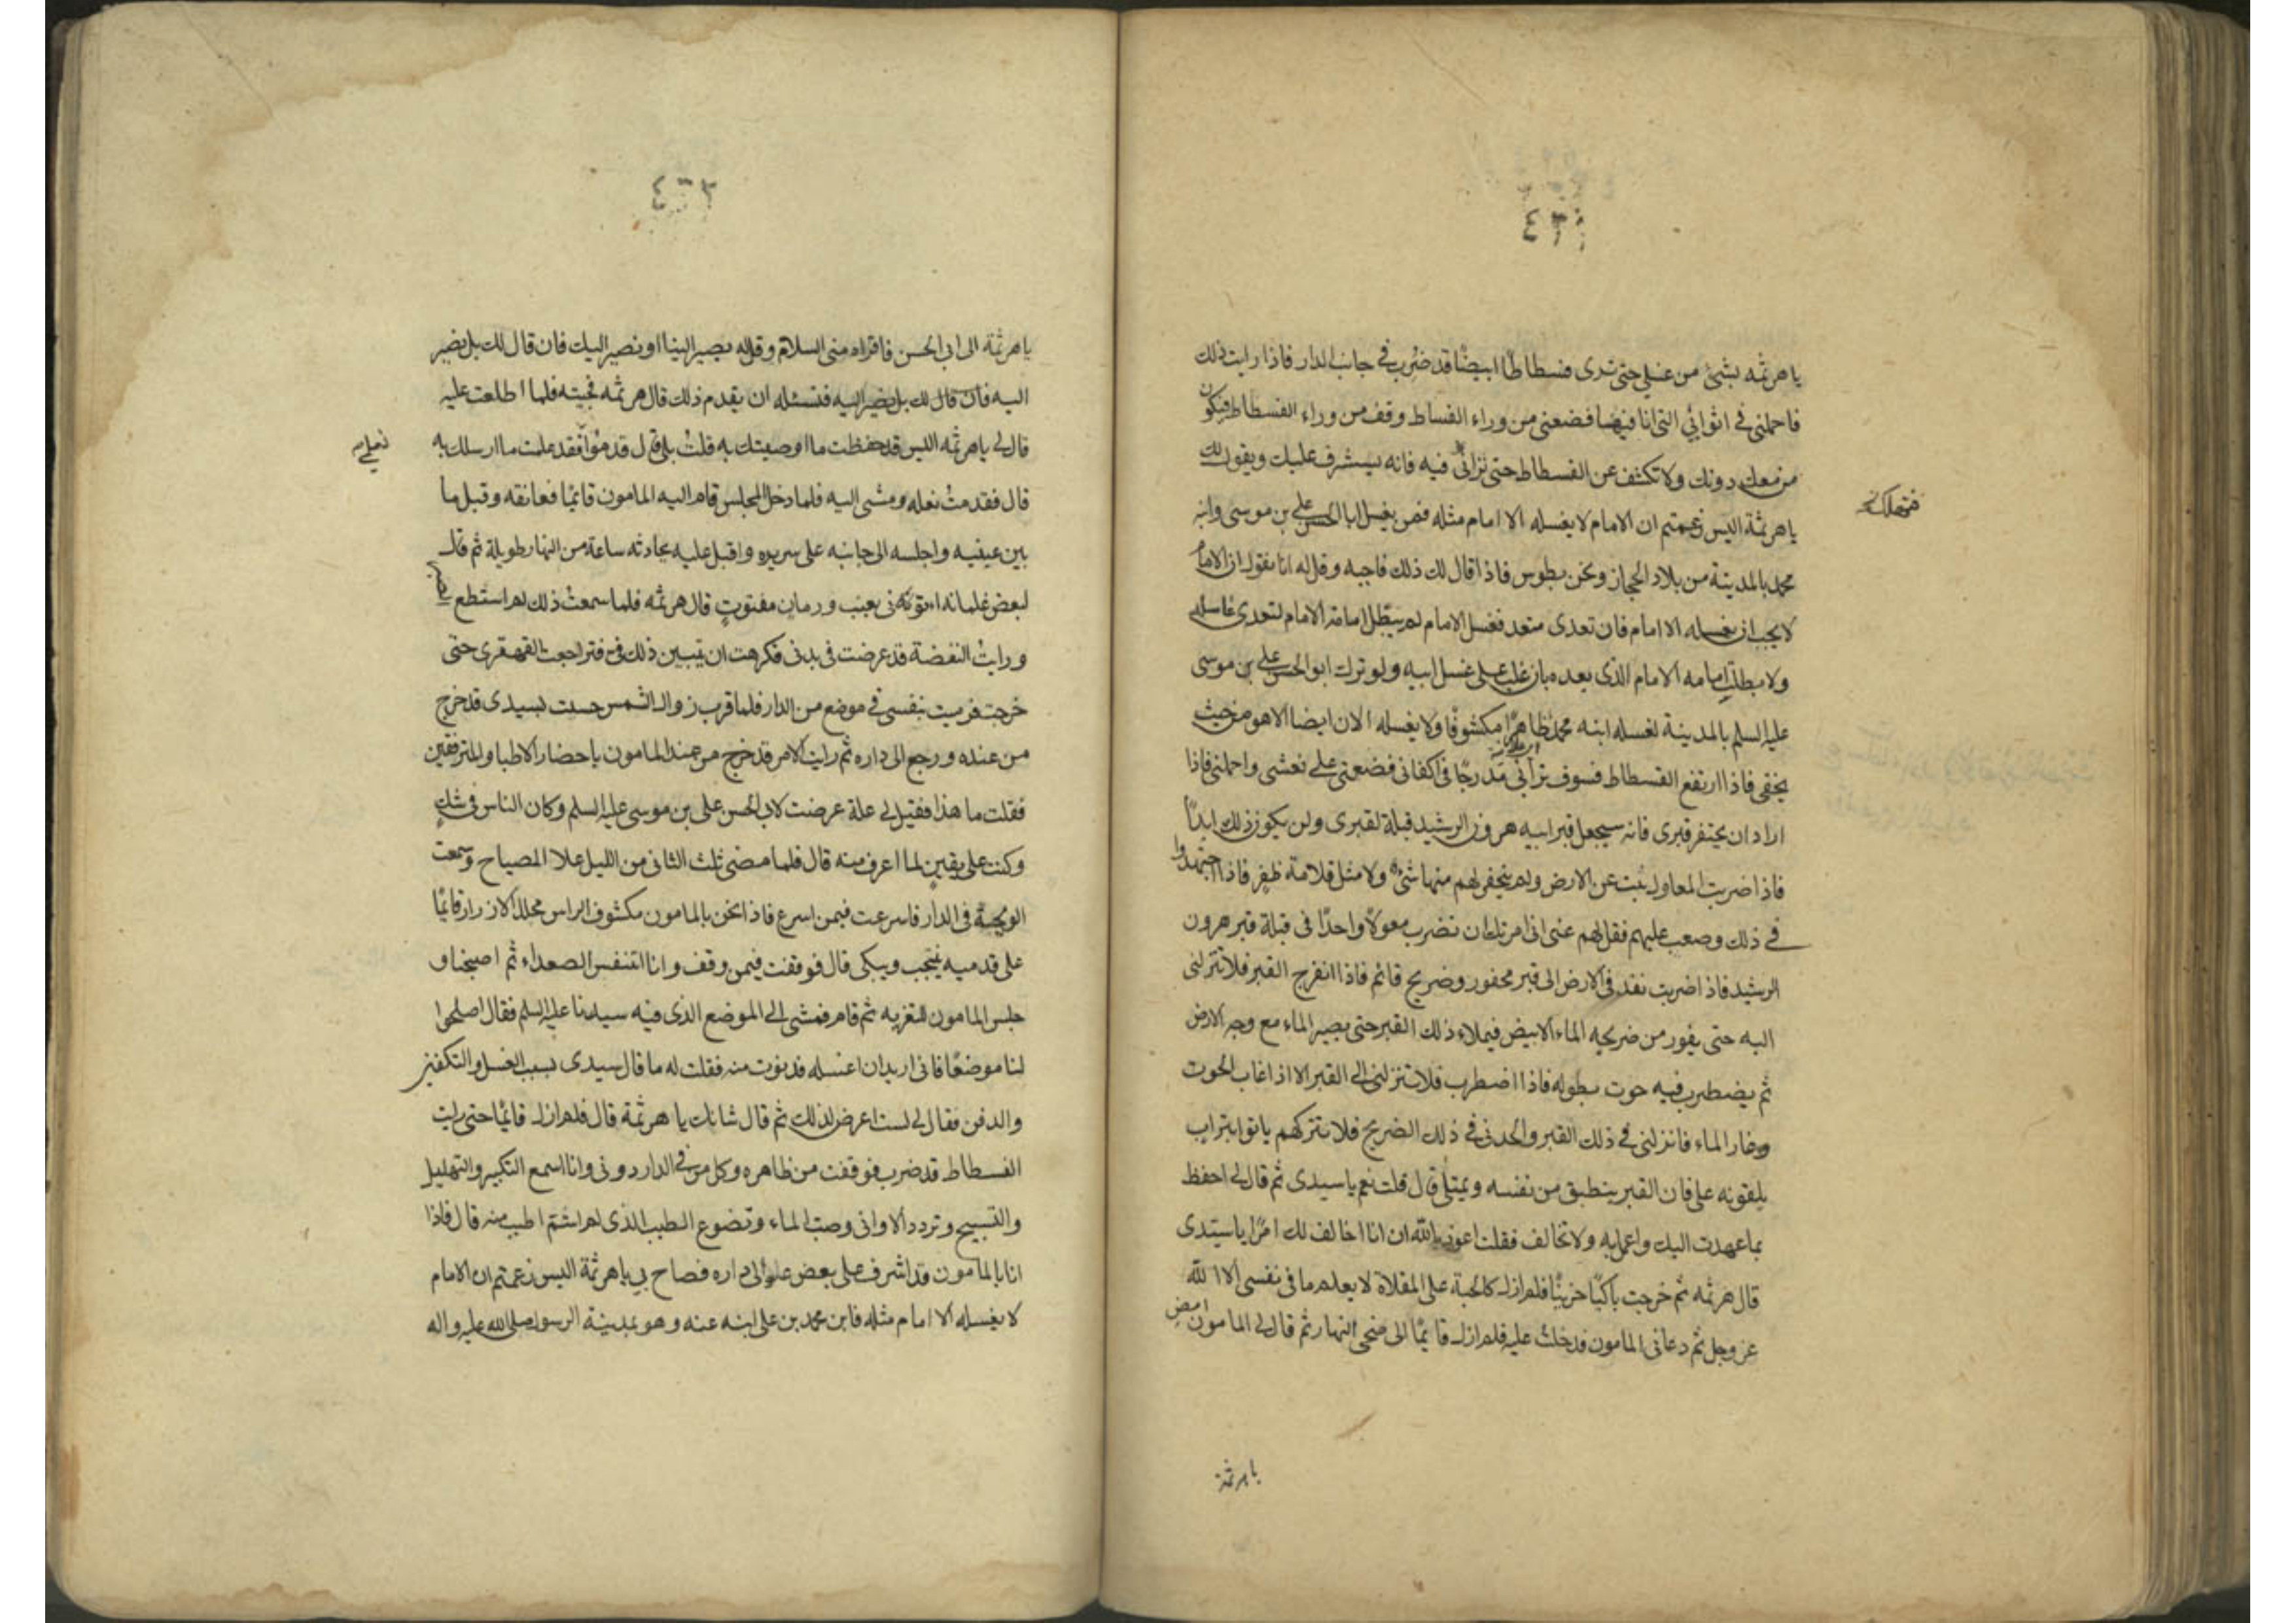 ٤٣١
يا هرثمه بشئ من غسلي حتى ترى فسطاطًا ابيضًا قد ضُرب في جانب الدار فاذا رايت ذلك
فاحملني في اثوابي التي انا فيها فضعني من وراء الفساط وقف من وراء الفسطاط فيكون
من معك دونك ولا تكشف عن الفسطاط حتى تراني فيه فانه سيشرف عليك ويقول لك
فتهلك
يا هرثمة اليس زعمتم ان الامام لا يغسله الا امام مثله فمن يغسل ابا الحسن علي بن موسى وابنه
محمد بالمدينة من بلاد الحجاز ونحن بطوس فاذا قال لك ذلك فاجبه وقل له انا نقول ان الامام
لا يجب ان يغسله الا امام فان تعدى متعد فغسل الامام لم يبطل امامة الامام لتعدى غاسله
ولا بطلت امامه الامام الذي بعده بان غلب على غسل ابيه ولو ترك ابو الحسن علي بن موسى
عليه السلم بالمدينة لغسله ابنه محمد ظاهرًا مكشوفًا ولا يغسله الان ايضا الا هو من حيث
يخفى فاذا ارتفع الفسطاط فسوف تراني مدرجًا في اكفاني فضعني على نعشى واحملني فاذا
اراد ان يحتفر قبرى فانه سيجعل قبر ابيه هرون الرشيد قبلة لقبرى ولن يكون ذلك ابدًا
فاذا ضربت المعاول نبت عن الارض ولم ينحفر لهم منها شئ ولا مثل قلامة ظفر فاذا اجتهدوا
في ذلك وصعب عليهم فقل لهم عني اني امرتك ان تضرب معولًا واحدًا في قبلة قبر هرون
الرشيد فاذا ضربت نفذ في الارض الى قبر محفور وضريح قائم فاذا انفرج القبر فلا تنزلني
اليه حتى يفور من ضريحه الماء الابيض فيملاء ذلك القبر حتى يصير الماء مع وجه الارض
ثم يضطرب فيه حوت بطوله فاذا اضطرب فلا تنزلني الى القبر الا اذا غاب الحوت
وغار الماء فانزلني في ذلك القبر والحدني في ذلك الضريح فلا تتركهم ياتوا بتراب
يلقونه على فان القبر ينطبق من نفسه ويمتلى قال قلت نعم يا سيدى ثم قال لي احفظ
بما عهدت اليك واعمل به ولا تخالف فقلت اعوذ بالله ان انا اخالف لك امرًا يا سيدى
قال هرثمه ثم خرجت باكيًا حزينًا فلم ازل كالحبة على المقلاة لا يعلم ما في نفسي الا الله
عز وجل ثم دعاني المامون فدخلت عليه فلم ازل قايمًا الى ضحى النهار ثم قال لي المامون امض
يا هرثمة
٤٣٢
يا هرثمة الى ابي الحسن فاقراه مني السلام وقل له تصير الينا او نصير اليك فان قال لك بل نصير
اليه فان قال لك بل نصير اليه فتسئله ان يقدم ذلك قال هرثمه فجيته فلما اطلعت عليه
قال لي يا هرثمه اليس قد حفظت ما اوصيتك به قلت بلى قال قدموا فقد علمت ما ارسلك به
نعلي
قال فقدمت نعله ومشى اليه فلما دخل المجلس قام اليه المامون قائمًا فعانقه وقبل ما
بين عينيه واجلسه الى جانبه على سريره واقبل عليه يحادثه ساعة من النهار طويلة ثم قال
لبعض غلمانه ائتوني بعنب ورمان مفتوت قال هرثمه فلما سمعت ذلك لم استطع
ورايت النفضة قد عرضت في بدني فكرهت ان يتبين ذلك في فتراجعت القهقرى حتى
خرجت فرميت بنفسي في موضع من الدار فلما قرب زوال الشمس حسست بسيدى قد خرج
من عنده ورجع الى داره ثم رايت الامر قد خرج من عند المامون باحضار الاطبا والمترفقين
فقلت ما هذا فقيل لي علة عرضت لابي الحسن علي بن موسى عليه السلم وكان الناس في شك
وكنت على يقين لما اعرف منه قال فلما مضى ثلث الثاني من الليل علا المصياح وسمعت
الوجبة في الدار فاسرعت فيمن اسرع فاذا نحن بالمامون مكشوف الراس محلل الازرار قائمًا
على قدميه ينتحب ويبكى قال فوقفت فيمن وقف وانا اتنفس الصعداء ثم اصبحنا و
جلس المامون للتعزيه ثم قام فمشى الى الموضع الذي فيه سيدنا عليه السلم فقال اصلحوا
لنا موضعًا فاني اريد ان اغسله فدنوت منه فقلت له ما قال سيدى بسبب الغسل والتكفين
والدفن فقال لي لست اعرض لذلك ثم قال شانك يا هرثمة قال فلم ازل قائمًا حتى رايت
الفسطاط قد ضرب فوقفت من ظاهره وكل من في الدار دوني وانا اسمع التكبير والتهليل
والتسبيح وتردد الاواني وصب الماء وتضوع الطيب الذي لم اشتم اطيب منه قال فاذا
انا بالمامون قد اشرف على بعض علو الى داره فصاح بي يا هرثمة اليس زعمتم ان الامام
لا يغسله الا امام مثله فاين محمد بن علي ابنه عنه وهو بمدينة الرسول صلى الله عليه واله